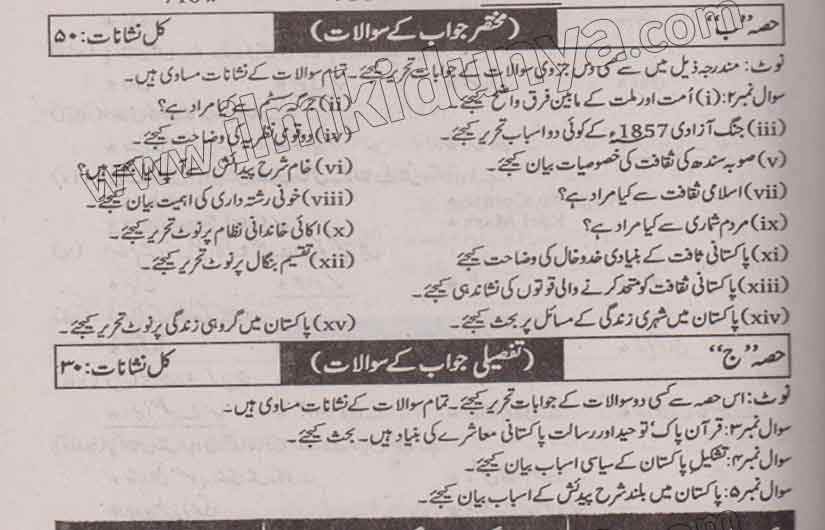 حصہ "ب" (مختصر جواب کے سوالات) کل نشانات: ۵۰
نوٹ: مندرجہ ذیل میں سے کسی دس جزوی سوالات کے جوابات تحریر کیجئے۔ تمام سوالات کے نشانات مساوی ہیں۔
سوال نمبر ۲: (i) اُمت اور ملت کے مابین فرق واضح کیجئے۔ (ii) جرگہ سسٹم سے کیا مراد ہے؟
(iii) جنگ آزادی 1857ء کے کوئی دو اسباب تحریر کیجئے۔ (iv) دو قومی نظریہ کی وضاحت کیجئے۔
(v) صوبہ سندھ کی ثقافت کی خصوصیات بیان کیجئے۔ (vi) خام شرح پیدائش سے آپ کیا سمجھتے ہیں؟
(vii) اسلامی ثقافت سے کیا مراد ہے؟ (viii) خونی رشتہ داری کی اہمیت بیان کیجئے۔
(ix) مردم شماری سے کیا مراد ہے؟ (x) اکائی خاندانی نظام پر نوٹ تحریر کیجئے۔
(xi) پاکستانی ثافت کے بنیادی خدوخال کی وضاحت کیجئے (xii) تقسیم بنگال پر نوٹ تحریر کیجئے۔
(xiii) پاکستانی ثقافت کو متحد کرنے والی قوتوں کی نشاندہی کیجئے۔
(xiv) پاکستان میں شہری زندگی کے مسائل پر بحث کیجئے۔ (xv) پاکستان میں گروہی زندگی پر نوٹ تحریر کیجئے۔
حصہ "ج" (تفصیلی جواب کے سوالات) کل نشانات: ۳۰
نوٹ: اس حصہ سے کسی دو سوالات کے جوابات تحریر کیجئے۔ تمام سوالات کے نشانات مساوی ہیں۔
سوال نمبر ۳: قرآن پاک، توحید اور رسالت پاکستانی معاشرے کی بنیاد ہیں۔ بحث کیجئے۔
سوال نمبر ۴: تشکیل پاکستان کے سیاسی اسباب بیان کیجئے۔
سوال نمبر ۵: پاکستان میں بلند شرح پیدائش کے اسباب بیان کیجئے۔
www.ilmkidunya.com